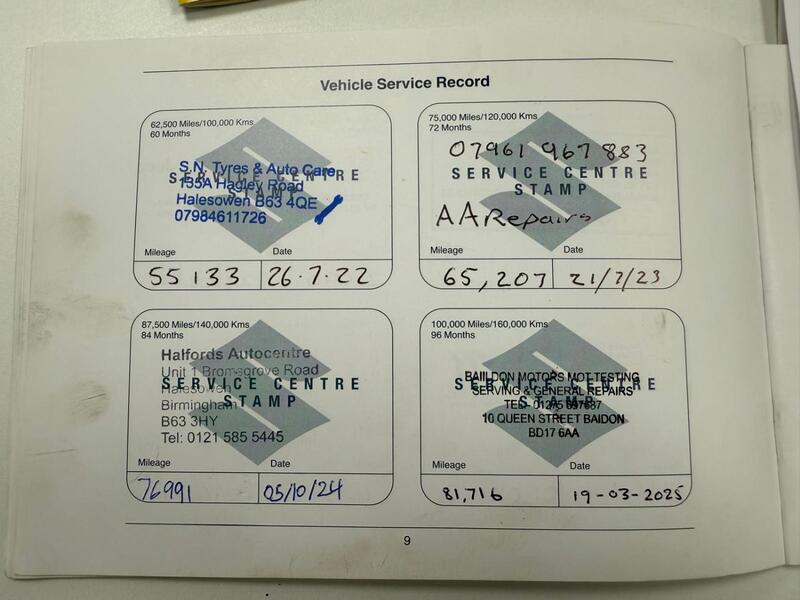 Vehicle Service Record
62,500 Miles/100,000 Kms
60 Months
S.N. Tyres & Auto Care
SERVICE CENTRE
135A Hagley Road
STAMP
Halesowen B63 4QE
07984611726
Mileage Date
55133 26.7.22
75,000 Miles/120,000 Kms
72 Months
07961 967 883
SERVICE CENTRE
STAMP
AA Repairs
Mileage Date
65,207 21/7/23
87,500 Miles/140,000 Kms
84 Months
Halfords Autocentre
Unit 1 Bromsgrove Road
SERVICE CENTRE
Halesowen
STAMP
Birmingham
B63 3HY
Tel: 0121 585 5445
Mileage Date
76991 05/10/24
100,000 Miles/160,000 Kms
96 Months
BAILDON MOTORS MOT TESTING
SERVICE CENTRE
SERVING & GENERAL REPAIRS
STAMP
10 QUEEN STREET BAIDON
BD17 6AA
Mileage Date
81,716 19-03-2025
9